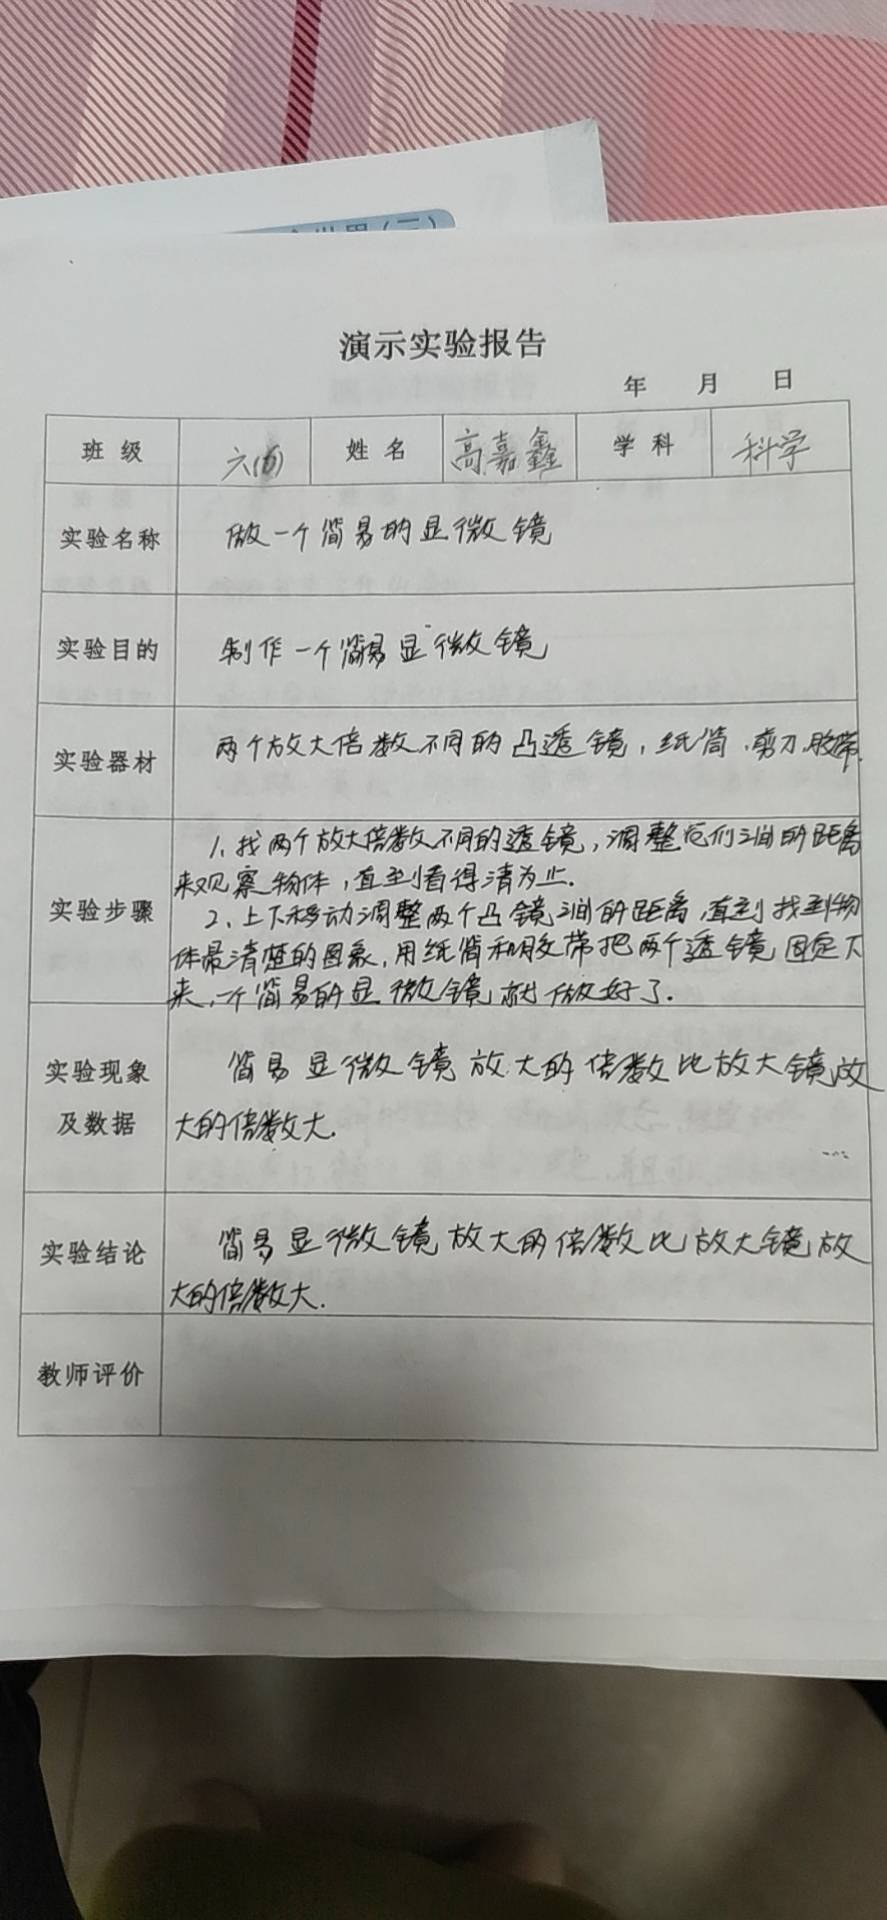 世界(二)
演示实验报告
年 月 日
班级 六 姓名 高嘉鑫 学科 科学
实验名称 做一个简易的显微镜
实验目的 制作一个简易显微镜
实验器材 两个放大倍数不同的凸透镜,纸筒、剪刀、胶带.
实验步骤 1、找两个放大倍数不同的透镜,调整它们之间的距离
来观察物体,直到看得清为止.
2、上下移动调整两个凸镜之间的距离,直到找到物
体最清楚的图象,用纸筒和胶带把两个透镜固定下
来,一个简易的显微镜就做好了.
实验现象及数据 简易显微镜放大的倍数比放大镜放
大的倍数大.
实验结论 简易显微镜放大的倍数比放大镜放
大的倍数大.
教师评价